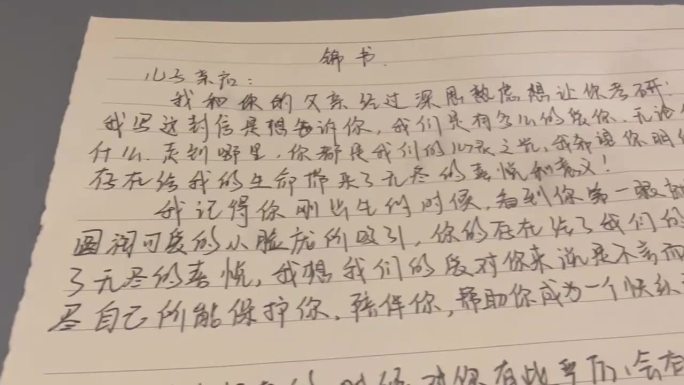 锦书
儿子亲启：
我和你的父亲经过深思熟虑想让你考研！
我写这封信是想告诉你，我们是有多么的爱你，无论
什么、走到哪里，你都是我们的心灵之光，我希望你明
存在给我的生命带来了无尽的喜悦和意义！
我记得你刚出生的时候，看到你第一眼
圆润可爱的小脸庞所吸引，你的存在给了我们的
了无尽的喜悦，我想我们的爱对你来说是不言而
尽自己所能保护你，陪伴你，帮助你成为一个快乐